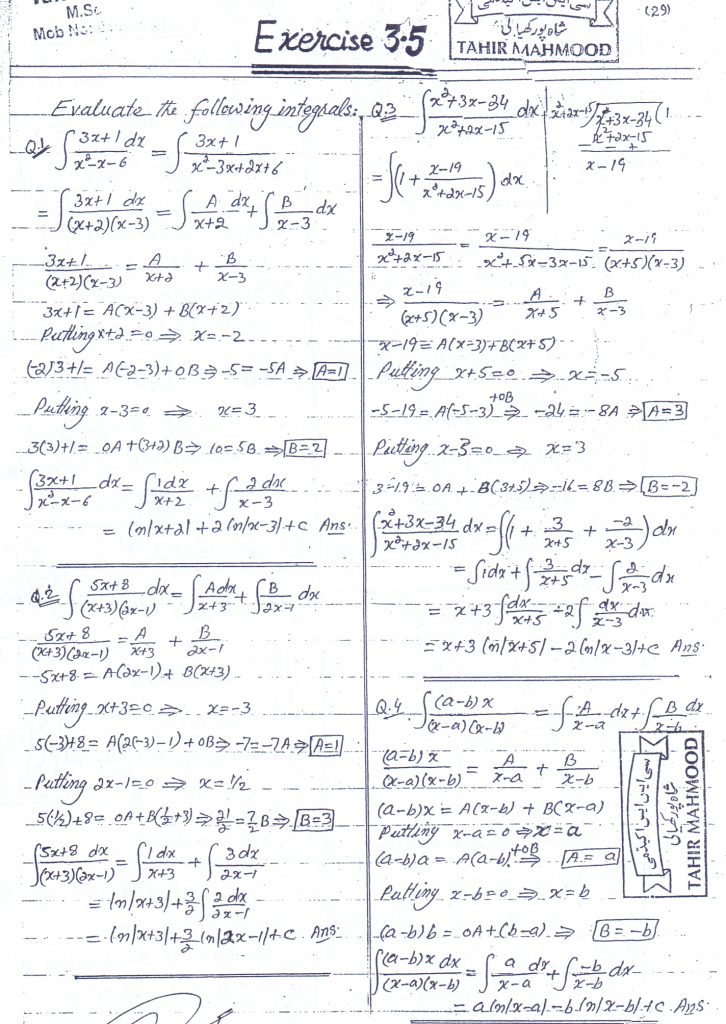 M.Sc
Mob No:
Exercise 3.5
شاہ پور کھیالی
TAHIR MAHMOOD
(29)
Evaluate the following integrals:
Q.1 ∫ 3x+1 dx / x²-x-6 = ∫ 3x+1 / x²-3x+2x+6
= ∫ 3x+1 dx / (x+2)(x-3) = ∫ A dx / x+2 + ∫ B / x-3 dx
3x+1 / (x+2)(x-3) = A / x+2 + B / x-3
3x+1 = A(x-3) + B(x+2)
Putting x+2=0 ⇒ x=-2
(-2)3+1 = A(-2-3)+0B ⇒ -5=-5A ⇒ A=1
Putting x-3=0 ⇒ x=3
3(3)+1 = 0A+(3+2)B ⇒ 10=5B ⇒ B=2
∫ 3x+1 / x²-x-6 dx = ∫ 1dx / x+2 + ∫ 2 dx / x-3
= ln|x+2|+2 ln|x-3|+c Ans.
Q.2 ∫ 5x+8 / (x+3)(2x-1) dx = ∫ Adx / x+3 + ∫ B / 2x-1 dx
5x+8 / (x+3)(2x-1) = A / x+3 + B / 2x-1
5x+8 = A(2x-1)+ B(x+3)
Putting x+3=0 ⇒ x=-3
5(-3)+8 = A(2(-3)-1)+0B ⇒ -7=-7A ⇒ A=1
Putting 2x-1=0 ⇒ x=1/2
5(1/2)+8 = 0A+B(1/2+3) ⇒ 21/2=7/2 B ⇒ B=3
∫ 5x+8 dx / (x+3)(2x-1) = ∫ 1dx / x+3 + ∫ 3dx / 2x-1
= ln|x+3|+ 3/2 ∫ 2dx / 2x-1
= ln|x+3|+ 3/2 ln|2x-1|+c Ans.
Q.3 ∫ x²+3x-34 / x²+2x-15 dx
x²+2x-15 ) x²+3x-34 ( 1
x²+2x-15
- - +
x-19
= ∫(1 + x-19 / x²+2x-15) dx
x-19 / x²+2x-15 = x-19 / x²+5x-3x-15 = x-19 / (x+5)(x-3)
⇒ x-19 / (x+5)(x-3) = A / x+5 + B / x-3
x-19 = A(x-3)+B(x+5)
Putting x+5=0 ⇒ x=-5
-5-19 = A(-5-3)+0B ⇒ -24 = -8A ⇒ A=3
Putting x-3=0 ⇒ x=3
3-19 = 0A + B(3+5) ⇒ -16=8B ⇒ B=-2
∫ x²+3x-34 / x²+2x-15 dx = ∫(1 + 3 / x+5 + -2 / x-3) dx
= ∫1dx + ∫ 3 / x+5 dx - ∫ 2 / x-3 dx
= x+3 ∫ dx / x+5 - 2 ∫ dx / x-3 dx
= x+3 ln|x+5| - 2 ln|x-3|+c Ans.
Q.4 ∫ (a-b)x / (x-a)(x-b) = ∫ A / x-a dx + ∫ B dx / x-b
(a-b)x / (x-a)(x-b) = A / x-a + B / x-b
(a-b)x = A(x-b) + B(x-a)
Putting x-a=0 ⇒ x=a
(a-b)a = A(a-b)+0B ⇒ A=a
Putting x-b=0 ⇒ x=b
(a-b)b = 0A+(b-a) ⇒ B=-b
∫ (a-b)x dx / (x-a)(x-b) = ∫ a dx / x-a + ∫ -b / x-b dx
= a ln|x-a| - b ln|x-b|+c Ans.
شاہ پور کھیالی
TAHIR MAHMOOD